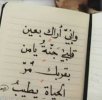 وإنّي أراك بعين
قلبي جنّة يا من
بقربك
الحياة تطيب